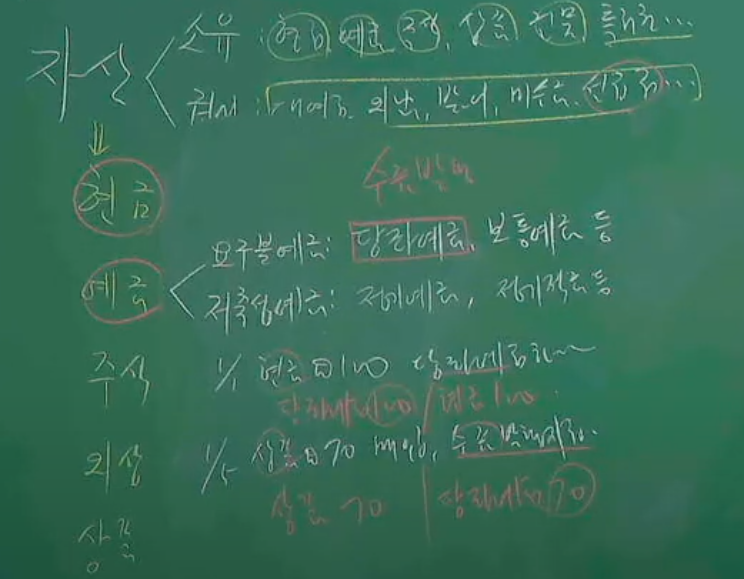 자산
소유 : 현금, 예금, 주식, 상품, 건물, 특허권...
권리 : 대여금, 외상, 받을어, 미수금, 선급금...
수표발행
현금
예금
요구불예금: 당좌예금, 보통예금 등
저축성예금: 정기예금, 정기적금등
주식 1/1 현금 ₩100 당좌예금하~
당좌예금100 / 현금100.
외상 1/5 상품₩70 매입, 수표발행지급.
상품 70 당좌예금70
상품